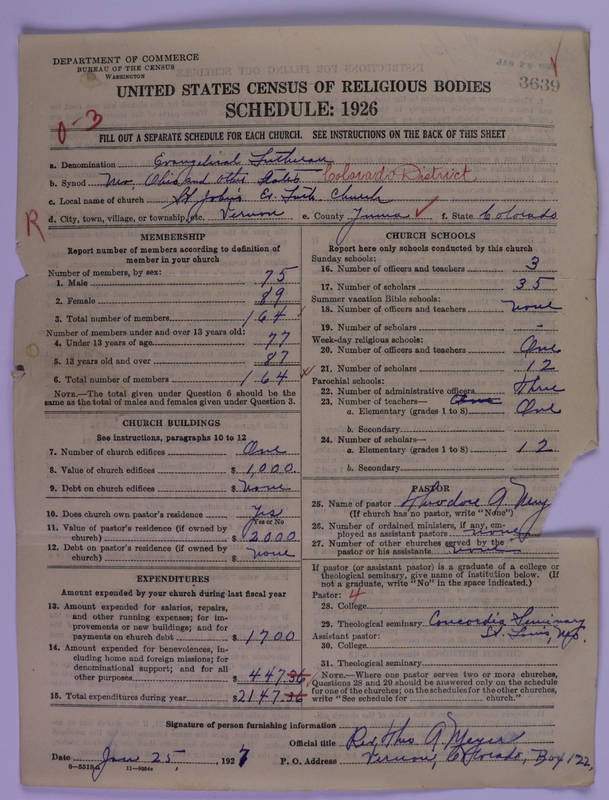 DEPARTMENT OF COMMERCE
BUREAU OF THE CENSUS
WASHINGTON
3639
UNITED STATES CENSUS OF RELIGIOUS BODIES
SCHEDULE: 1926
0-3
FILL OUT A SEPARATE SCHEDULE FOR EACH CHURCH. SEE INSTRUCTIONS ON THE BACK OF THIS SHEET
a. Denomination Evangelical Lutheran
b. Synod Mo., Ohio and other States Colorado District
c. Local name of church St John's Ev. Luth. Church
d. City, town, village, or township, etc. Vernon e. County Yuma f. State Colorado
R
MEMBERSHIP
Report number of members according to definition of
member in your church
Number of members, by sex:
1. Male 75
2. Female 89
3. Total number of members 164
Number of members under and over 13 years old:
4. Under 13 years of age 77
5. 13 years old and over 87
6. Total number of members 164
NOTE.—The total given under Question 6 should be the
same as the total of males and females given under Question 3.
CHURCH BUILDINGS
See instructions, paragraphs 10 to 12
7. Number of church edifices One
8. Value of church edifices $ 1,000
9. Debt on church edifices $ None
10. Does church own pastor's residence? Yes
Yes or No
11. Value of pastor's residence (if owned by
church) $ 2000
12. Debt on pastor's residence (if owned by
church) $ None
EXPENDITURES
Amount expended by your church during last fiscal year
13. Amount expended for salaries, repairs,
and other running expenses; for im-
provements or new buildings; and for
payments on church debt $ 1700
14. Amount expended for benevolences, in-
cluding home and foreign missions; for
denominational support; and for all
other purposes $ 447.36
15. Total expenditures during year $ 2147.36
CHURCH SCHOOLS
Report here only schools conducted by this church
Sunday schools:
16. Number of officers and teachers 3
17. Number of scholars 35
Summer vacation Bible schools:
18. Number of officers and teachers None
19. Number of scholars -
Week-day religious schools:
20. Number of officers and teachers One
21. Number of scholars 12
Parochial schools:
22. Number of administrative officers three
23. Number of teachers— One
a. Elementary (grades 1 to 8) One
b. Secondary
24. Number of scholars—
a. Elementary (grades 1 to 8) 12
b. Secondary
PASTOR
25. Name of pastor Theodore A Mey
(If church has no pastor, write "None")
26. Number of ordained ministers, if any, em-
ployed as assistant pastors none
27. Number of other churches served by the
pastor or his assistants none
If pastor (or assistant pastor) is a graduate of a college or
theological seminary, give name of institution below. (If
not a graduate, write "No" in the space indicated.)
Pastor: 4
28. College
29. Theological seminary Concordia Seminary
Assistant pastor: St. Louis, Mo.
30. College
31. Theological seminary
NOTE.—Where one pastor serves two or more churches,
Questions 28 and 29 should be answered only on the schedule
for one of the churches; on the schedules for the other churches,
write "See schedule for church."
Signature of person furnishing information
Official title Rev. Theo A. Meyer
Date Jan 25, 1927 P. O. Address Vernon, Colorado, Box 122
8—5518a 11—9264a